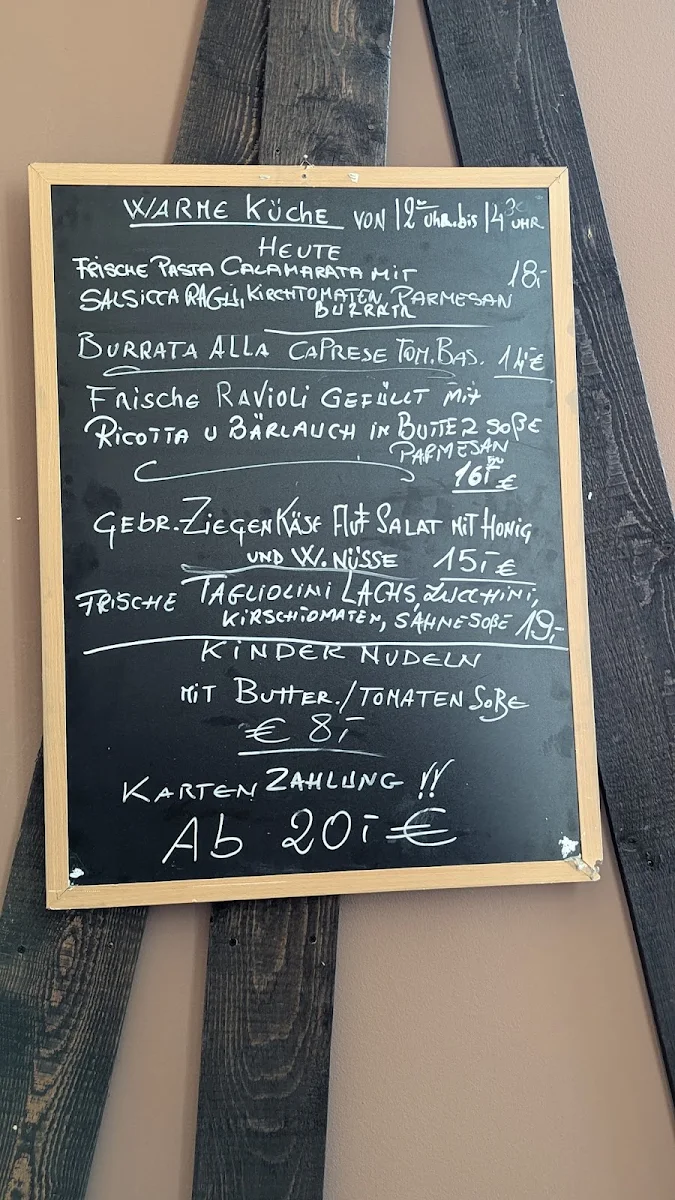 WARME KÜCHE VON 12⁰⁰ Uhr bis 14³⁰ UHR
HEUTE
FRISCHE PASTA CALAMARATA MIT 18,-
SALSICCA RAGU, KIRCHTOMATEN, PARMESAN
BURRATA
BURRATA ALLA CAPRESE TOM. BAS. 14€
FRISCHE RAVIOLI GEFÜLLT Mit
RICOTTA U BÄRLAUCH IN BUTTER SOßE
PARMESAN
16,- €
GEBR. ZIEGENKÄSE AUF SALAT MIT HONIG
UND W. NÜSSE 15,- €
FRISCHE TAGLIOLINI LACHS, ZUCCHINI,
KIRSCHTOMATEN, SAHNESOßE 19,-
KINDER NUDELN
MIT BUTTER./TOMATEN SOßE
€ 8,-
KARTEN ZAHLUNG !!
Ab 20,- €